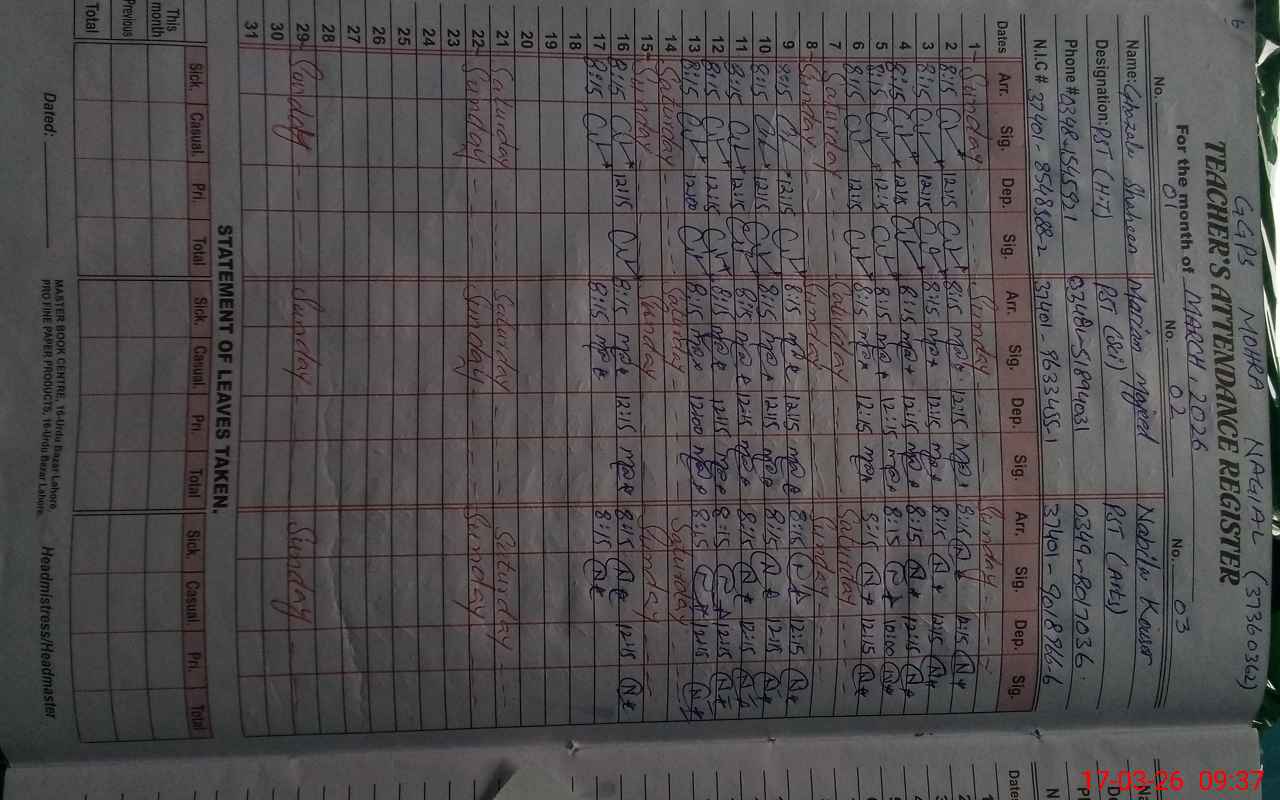 6
GGPS MOHRA NAGIAL (37360362)
TEACHER'S ATTENDANCE REGISTER
For the month of MARCH, 2026
No. 01 No. 02 No. 03
Name: Ghazala Shaheen Mariam Majeed Nabila Kousar
Designation: PST (H.T) PST (Sci) PST (Arts)
Phone # 0348-1545921 0348-5189403 0349-8017036
N.I.C # 37401-8548588-2 37401-9633455-1 37401-9018966-6
Dates Arr. Sig. Dep. Sig. Arr. Sig. Dep. Sig. Arr. Sig. Dep. Sig.
1 Sunday Sunday Sunday
2 8:15 12:15 8:15 12:15 8:15 12:15
3 8:15 12:15 8:15 12:15 8:15 12:15
4 8:15 12:15 8:15 12:15 8:15 12:15
5 8:15 12:15 8:15 12:15 8:15
6 8:15 12:15 8:15 12:15 8:15 12:15
7 Saturday Saturday Saturday
8 Sunday Sunday Sunday
9 8:15 12:15 8:15 12:15 8:15 12:15
10 8:15 12:15 8:15 12:15 8:15 12:15
11 8:15 12:15 8:15 12:15 8:15 12:15
12 8:15 12:15 8:15 12:15 8:15 12:15
13 8:15 12:00 8:15 12:00 8:15 12:15
14 Saturday Saturday Saturday
15 Sunday Sunday Sunday
16 8:15 12:15 8:15 12:15 8:15 12:15
17 8:15 8:15 8:15
18
19
20
21 Saturday Saturday Saturday
22 Sunday Sunday Sunday
23
24
25
26
27
28
29 Sunday Sunday Sunday
30
31
STATEMENT OF LEAVES TAKEN.
Sick. Casual. Pri. Total Sick. Casual. Pri. Total Sick Casual Pri. Total
This month
Previous
Total
MASTER BOOK CENTRE, 16-Urdu Bazar Lahore.
PRO FINE PAPER PRODUCTS, 16-Urdu Bazar Lahore.
Dated: Headmistress/Headmaster
17-03-26 09:37